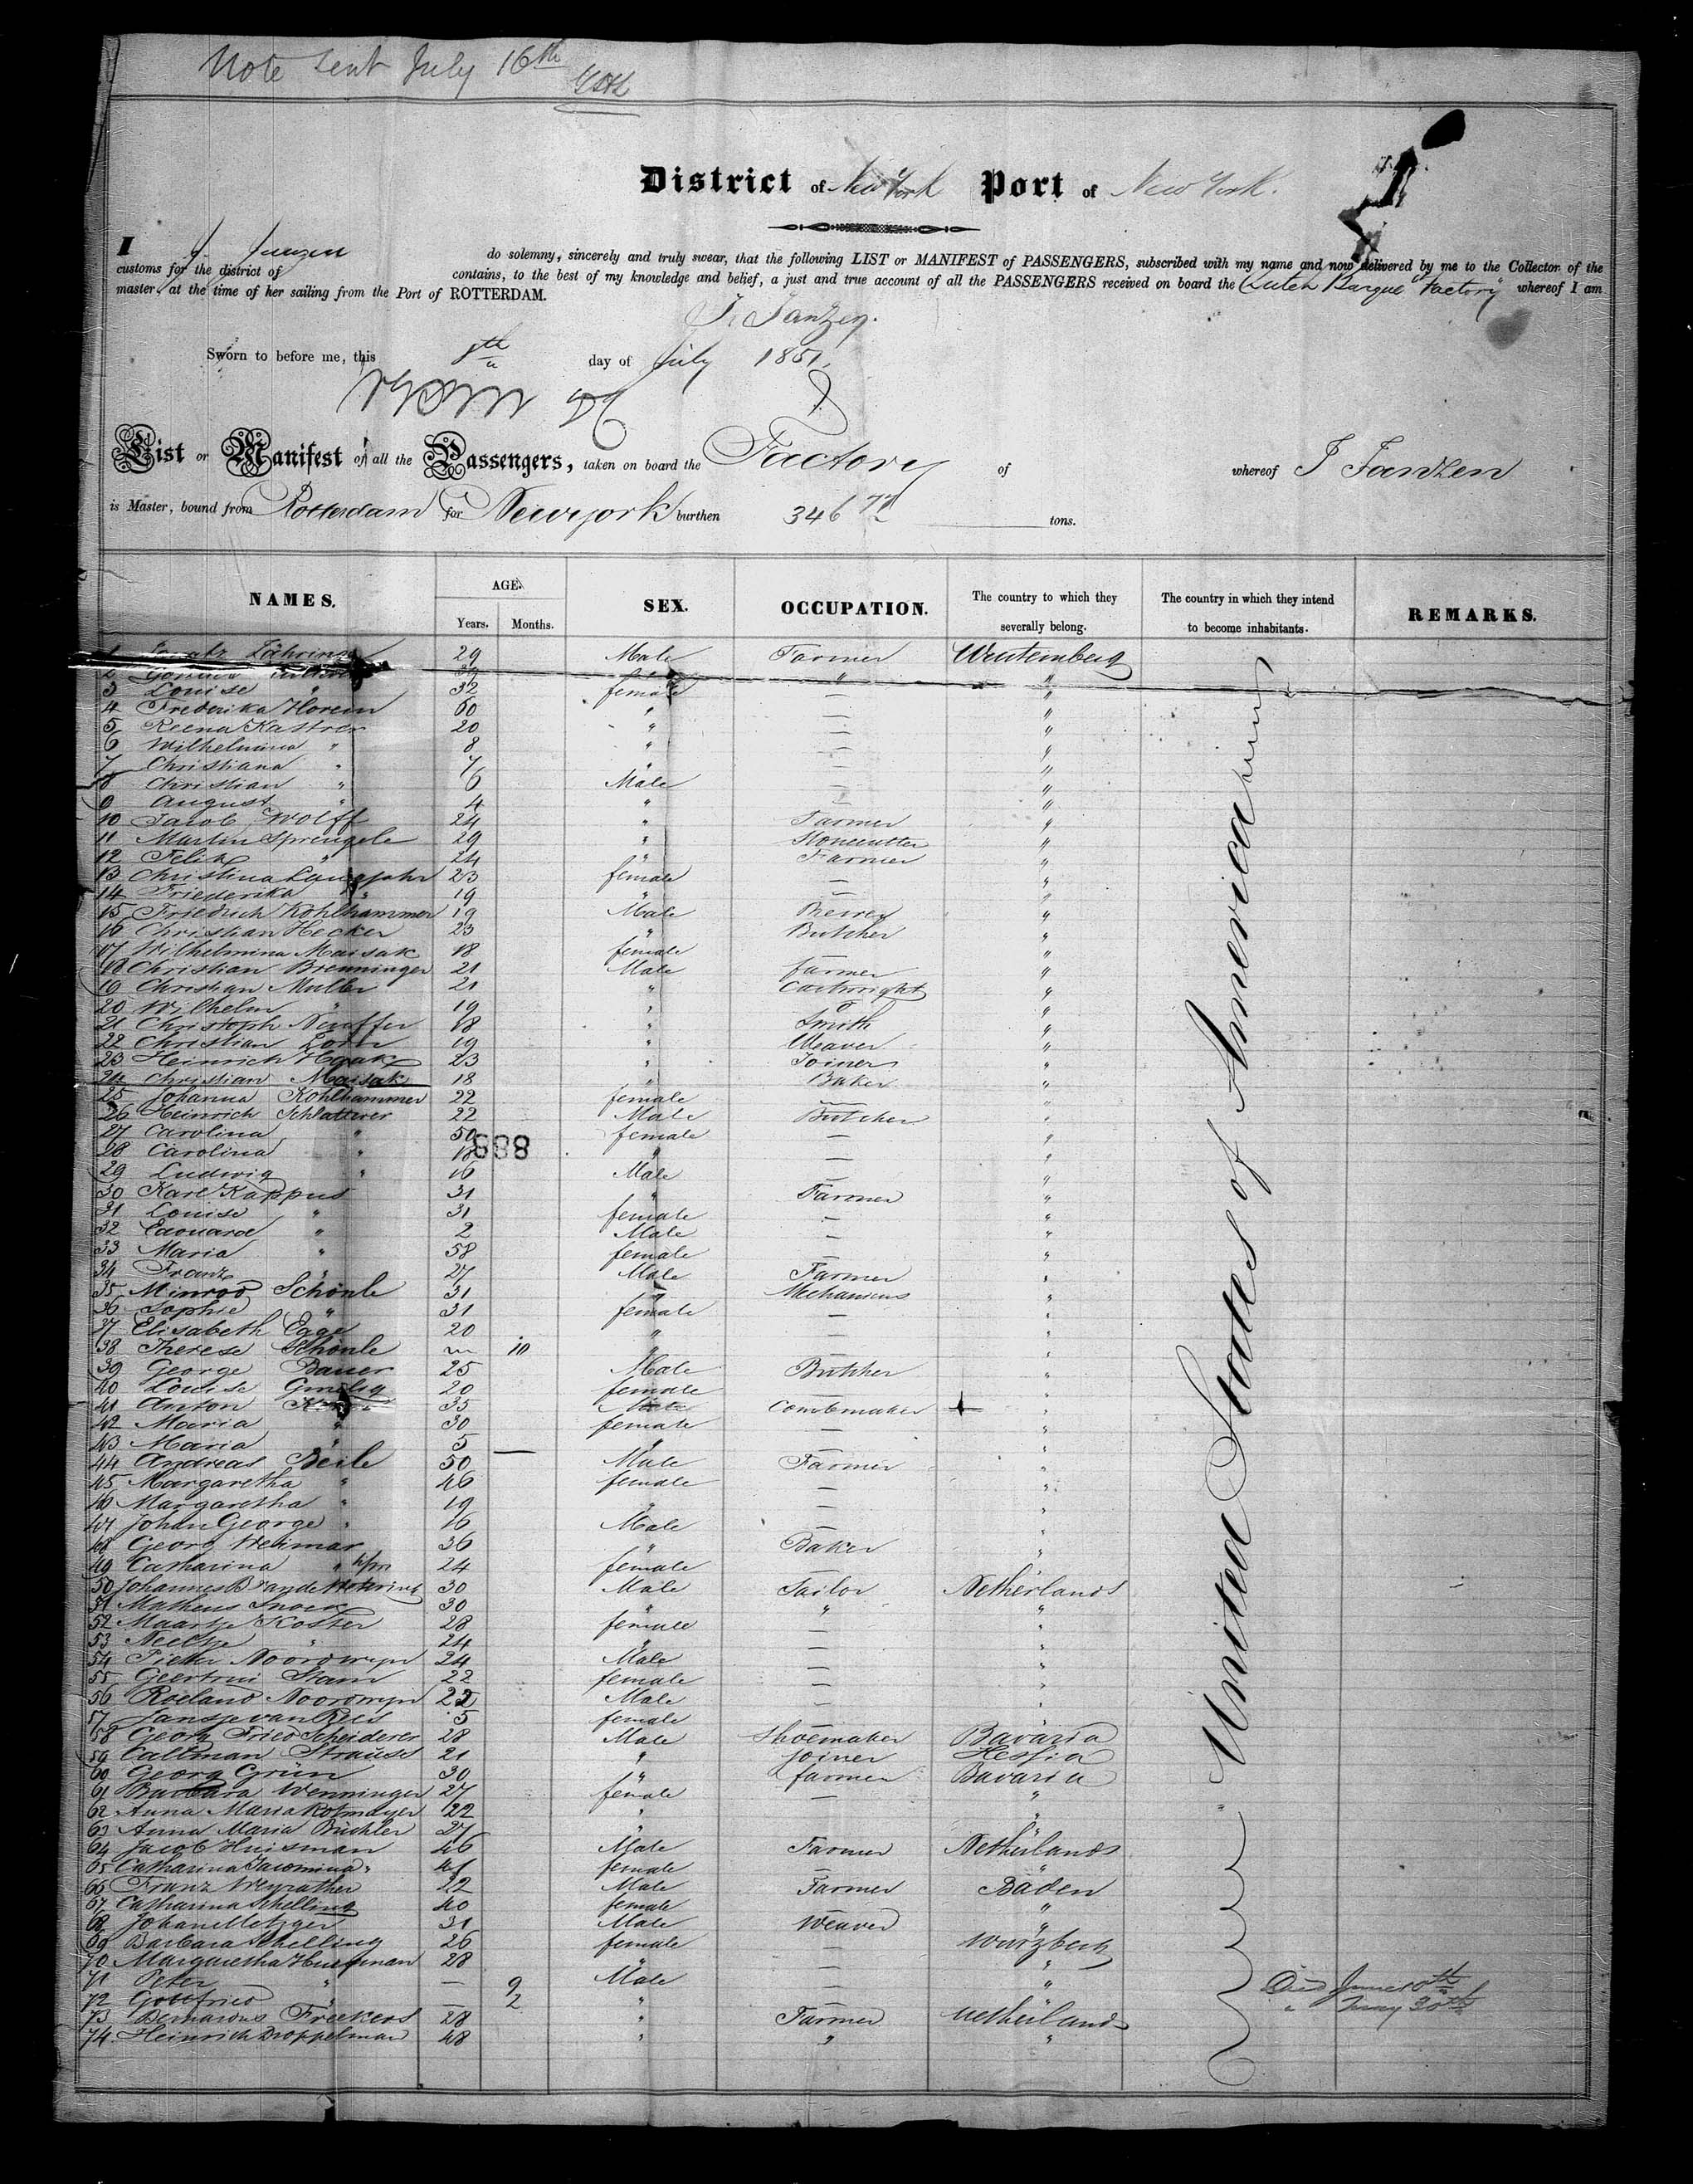 Note sent July 16th
District of New York Port of New York.
I J. Janzen do solemny, sincerely and truly swear, that the following LIST or MANIFEST of PASSENGERS, subscribed with my name and now delivered by me to the Collector of the
customs for the district of contains, to the best of my knowledge and belief, a just and true account of all the PASSENGERS received on board the Dutch Barque "Factory" whereof I am
master, at the time of her sailing from the Port of ROTTERDAM.
J. Janzen.
Sworn to before me, this 8th day of July 1851.
List or Manifest of all the Passengers, taken on board the Factory of whereof J Janzen
is Master, bound from Rotterdam for Newyork burthen 346 tons.
NAMES. AGE. SEX. OCCUPATION. The country to which they severally belong. The country in which they intend to become inhabitants. REMARKS.
Years. Months.
United States of America
1 29 Male Farmer Wurtemberg
2 "
3 Louise " 32 female — "
4 Frederika Horein 60 " — "
5 Reena Kastner 20 " — "
6 Wilhelmina " 8 " — "
7 Christiana " 7 " — "
8 Christian " 6 Male — "
9 August " 4 " — "
10 Jacob Wolff 24 " Farmer "
11 Martin Sprengele 29 " Stonecutter "
12 Felix " 24 " Farmer "
13 Christina Langjahr 23 female — "
14 Friederika " 19 " — "
15 Friedrich Kohlhammer 19 Male Brewer "
16 Christian Hecker 23 " Butcher "
17 Wilhelmina Maisak 18 female — "
18 Christian Brenninger 21 Male farmer "
19 Christian Muller 21 " Cartwright "
20 Wilhelm " 19 " "
21 Christoph Neuffer 18 " Smith "
22 Christian Zorn 19 " Weaver "
23 Heinrich Haak 23 " Joiner "
24 Christian Maisak 18 " Baker "
25 Johanna Kohlhammer 22 female — "
26 Heinrich Schlatterer 22 Male Butcher "
27 Carolina " 50 female — "
888
28 Carolina " 18 " — "
29 Ludwig " 16 Male — "
30 Karl Kappus 31 " Farmer "
31 Louise " 31 female — "
32 Edouard " 2 Male — "
33 Maria " 58 female — "
34 Franz " 27 Male Farmer "
35 Schönle 31 " Mechanicus "
36 Sophie " 31 female — "
37 Elisabeth 20 " — "
38 Therese Schönle 10 " — "
39 George Bauer 25 Male Butcher "
40 Louise Gmelig 20 female — "
41 Anton 35 Male Combmaker "
42 Maria " 30 female — "
43 Maria " 5 " — "
44 Andreas Beile 50 Male Farmer "
45 Margaretha " 46 female — "
46 Margaretha " 19 " — "
47 Johan George " 16 Male — "
48 Georg Weimar 36 " Baker "
49 Catharina " 24 female — "
50 Johannes B 30 Male Tailor Netherlands
51 Matheus Snoek 30 " " "
52 Maartje Koster 28 female — "
53 Neeltje " 24 " — "
54 Pieter Noordwyn 24 Male — "
55 Geertrui Stam 22 female — "
56 Roeland Noordwyn 22 Male — "
57 Jansje van Rees 5 female — "
58 Georg Fried Scheiderer 28 Male Shoemaker Bavaria
59 Caltman Strauss 21 " Joiner Hessia
60 Georg Grün 30 " farmer Bavaria
61 Barbara Wenninger 27 female — "
62 Anna Maria Rotmayer 22 " "
63 Anna Maria Büchler 27 " "
64 Jacob Huisman 46 Male Farmer Netherlands
65 Catharina Jacomina " 41 female — "
66 Franz Weyrather 32 Male Farmer Baden
67 Catharina Schelling 40 female — "
68 Johan Metzger 31 Male Weaver "
69 Barbara Schelling 26 female — Wurzberg
70 Margaretha 28 " — "
71 Peter " — 9 Male — " Died June 10th
72 Gottfried " — 2 " — " " May 30th
73 Bernardus Freekers 28 " Farmer Netherlands
74 Heinrich Droppelman 48 " " "